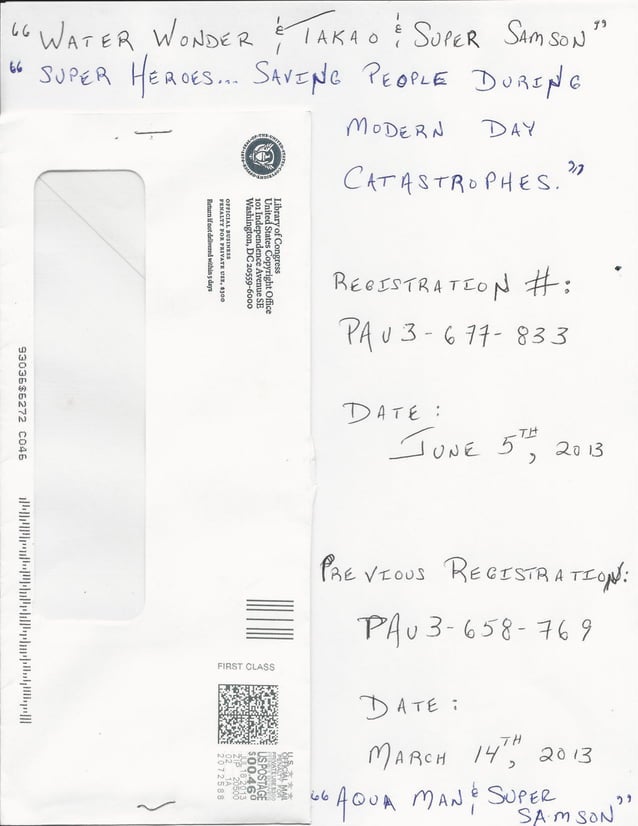 “WATER WONDER & TAKAO & SUPER SAMSON”
“SUPER HEROES... SAVING PEOPLE DURING
MODERN DAY
CATASTROPHES.”
Library of Congress
United States Copyright Office
101 Independence Avenue SE
Washington, DC 20559-6000
OFFICIAL BUSINESS
PENALTY FOR PRIVATE USE, $300
Return if not delivered within 5 days
93036$6272 C046
REGISTRATION #:
PAU3-677-833
DATE:
JUNE 5TH, 2013
PREVIOUS REGISTRATION:
PAU3-658-769
DATE:
MARCH 14TH, 2013
“AQUA MAN & SUPER
SAMSON”
FIRST CLASS
US POSTAGE
$00460